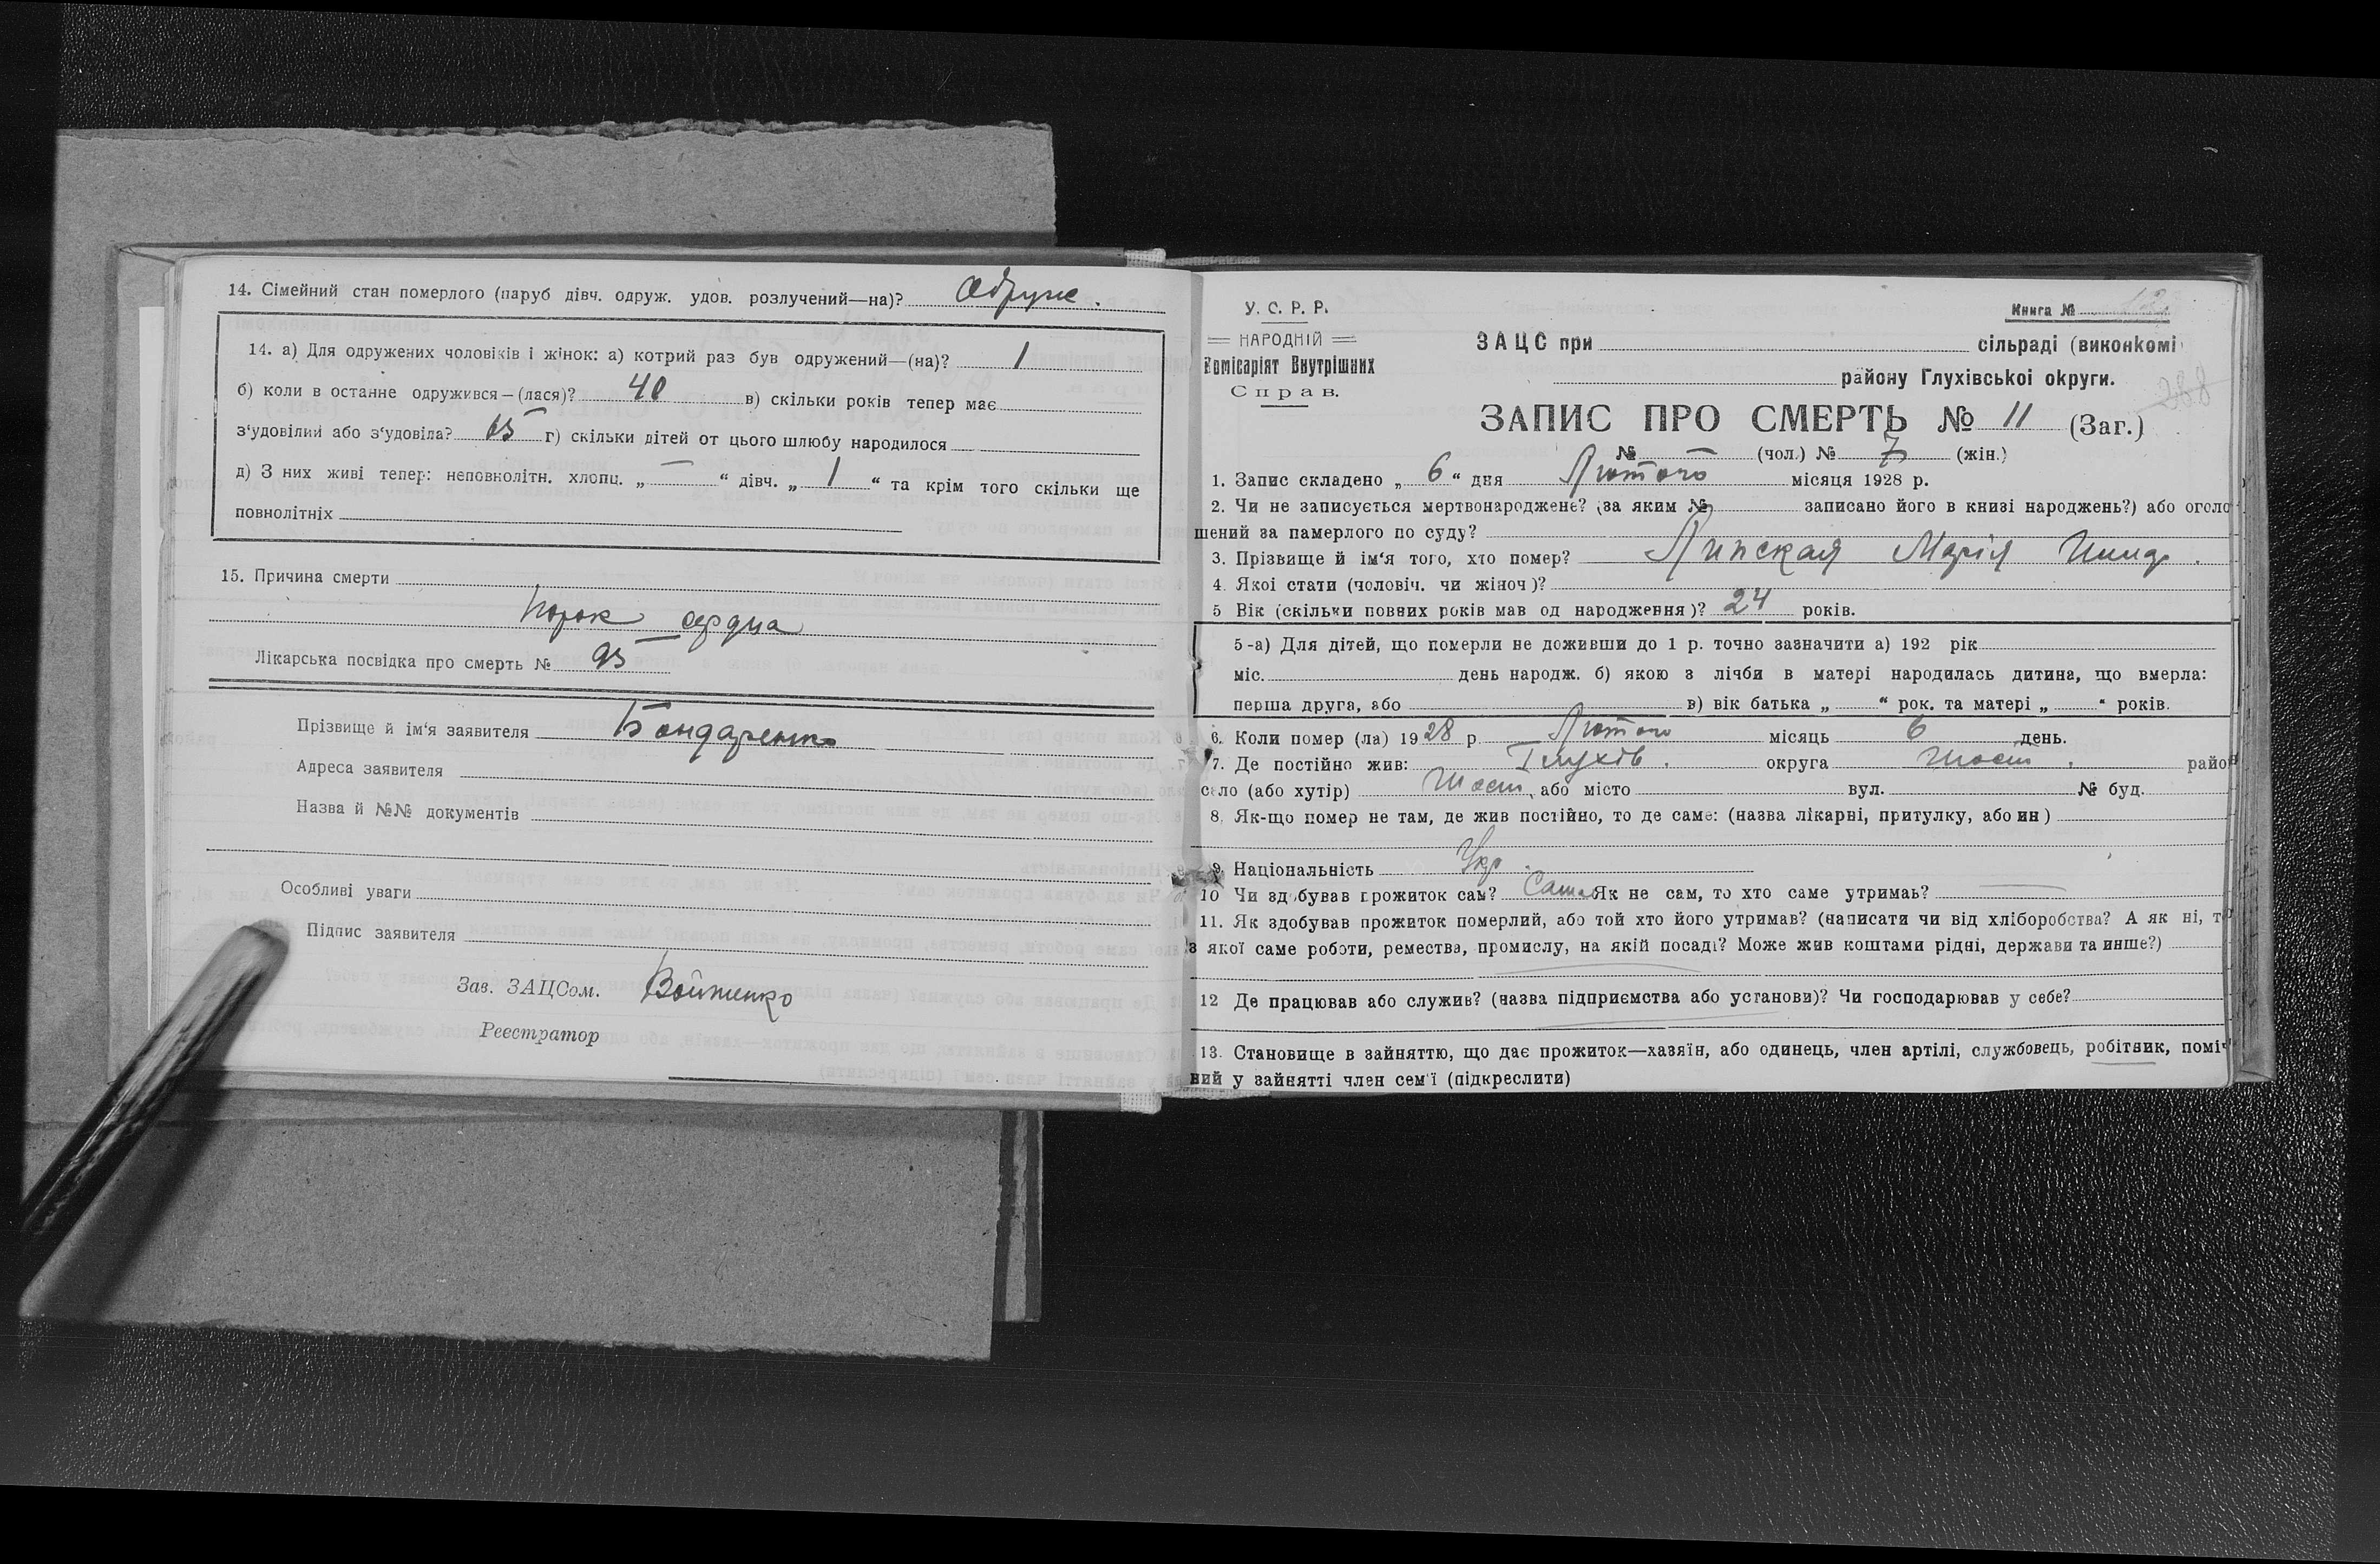 14. Сімейний стан померлого (паруб дівч. одруж. удов. розлучений—на)? Одруж.
14. а) Для одружених чоловіків і жінок: а) котрий раз був одружений—(на)? 1
б) коли в останне одружився—(лася)? 40 в) скільки років тепер має
з‘удовілий або з‘удовіла? 65 г) скільки дітей от цього шлюбу народилося
д) З них живі тепер: неповнолітн. хлопц. „ — “ дівч. „ 1 “ та крім того скільки ще
повнолітніх
15. Причина смерти
Порок сердца
Лікарська посвідка про смерть № 95
Прізвище й ім‘я заявителя Бондаренко
Адреса заявителя
Назва й №№ документів
Особливі уваги
Підпис заявителя
Зав. ЗАЦСом. Войтенко
Реєстратор
У. С. Р. Р.
НАРОДНІЙ
Комісаріят Внутрішних
Справ.
Книга №
ЗАЦС при сільраді (виконкомі
району Глухівської округи.
288
ЗАПИС ПРО СМЕРТЬ № 11 (Заг.)
№ — (чол.) № 7 (жін.)
1. Запис складено „ 6 “ дня Лютого місяця 1928 р.
2. Чи не записується мертвонароджене? (за яким № записано його в книзі народжень?) або оголо
шений за памерлого по суду?
3. Прізвище й ім‘я того, хто помер? Липская Марія
4. Якоі стати (чоловіч. чи жіноч)?
5 Вік (скільки повних років мав од народження)? 24 років.
5-а) Для дітей, що померли не доживши до 1 р. точно зазначити а) 192 рік
міс. день народж. б) якою з лічби в матері народилась дитина, що вмерла:
перша друга, або в) вік батька „ “ рок. та матері „ “ років.
6. Коли помер (ла) 1928 р. Лютого місяць 6 день.
7. Де постійно жив: Глухів. округа Шост. район
село (або хутір) Шост, або місто вул. № буд.
8. Як-що помер не там, де жив постійно, то де саме: (назва лікарні, притулку, або ин)
9. Національність Укр.
10 Чи здобував прожиток сам? Сама Як не сам, то хто саме утримаь? —
11. Як здобував прожиток померлий, або той хто його утримав? (написати чи від хліборобства? А як ні, т
з якої саме роботи, ремества, промислу, на якій посаді? Може жив коштами рідні, держави та инше?)
12 Де працював або служив? (назва підприємства або установи)? Чи господарював у себе?
13. Становище в зайняттю, що дає прожиток—хазяїн, або одинець, член артілі, службовець, робітвик, поміч
ний у зайнятті член сем‘ї (підкреслити)